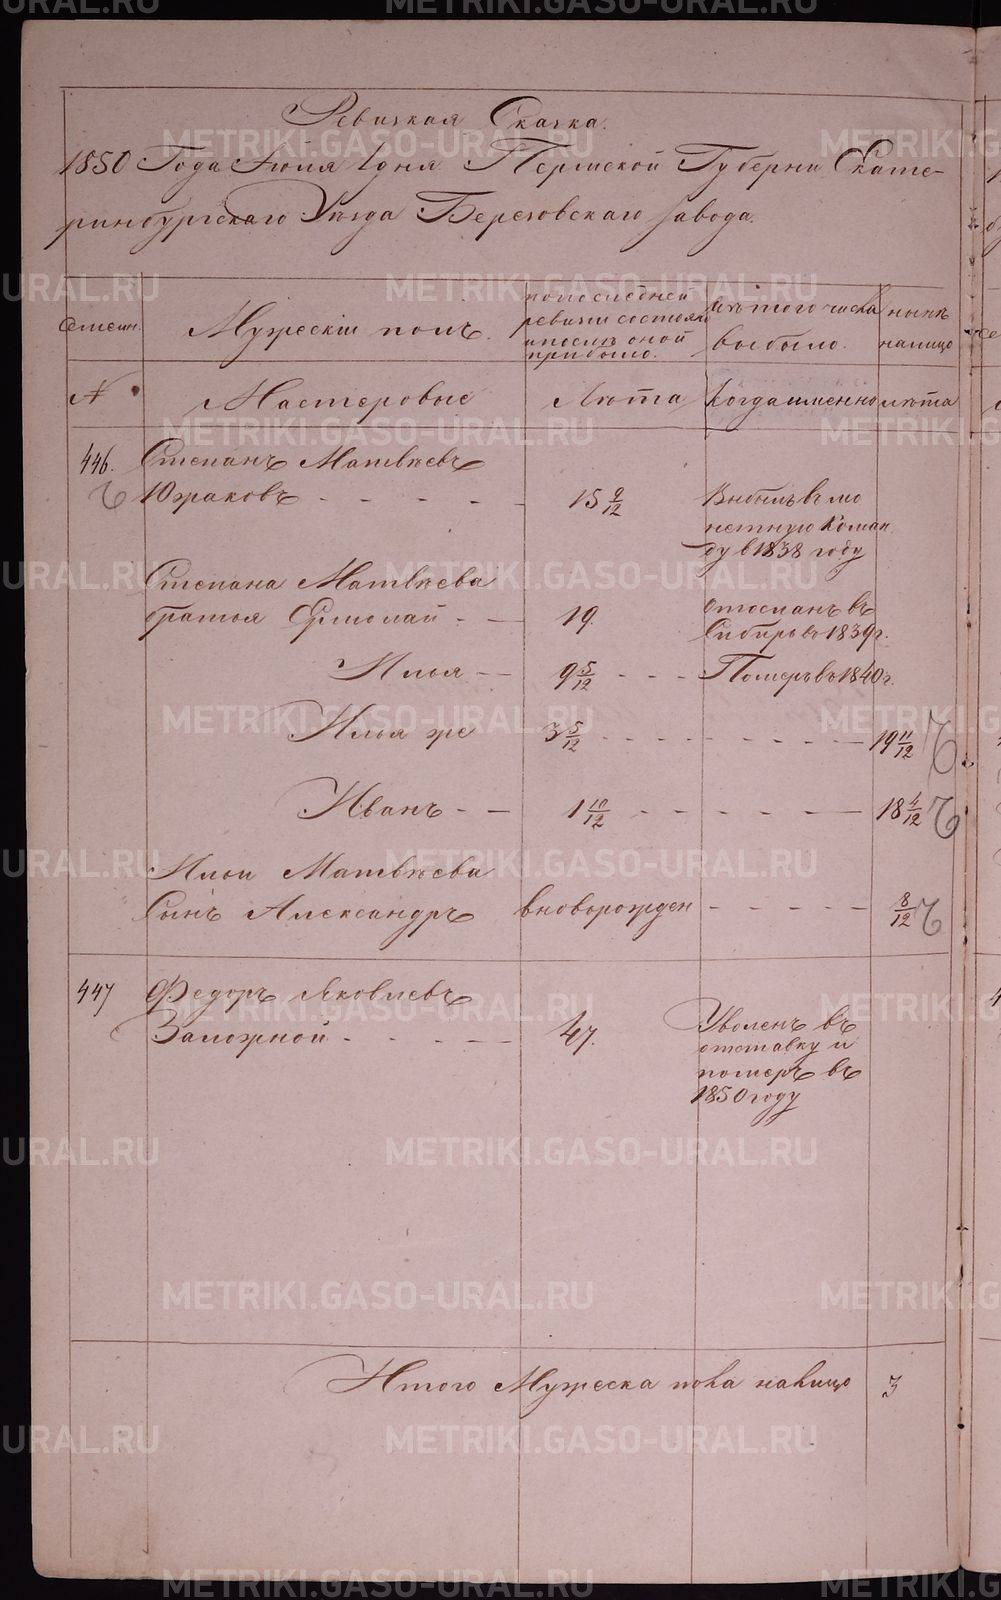 Ревизкая Сказка.
1850 Года Июля 1 дня Пермской Губерни Екате-
ринбургскаго Уезда Березовскаго завода.
Семейн.
Мужескiй полъ.
по последней
ревизи состояло
и после оной
прибыло.
Изъ того числа
выбыло.
ныне
налицо
№
Мастеровые
Лѣта
Когда именно
лѣта
446.
Степанъ Матвѣевъ
Южаковъ - - - -
15 9/12
Выбылъ в мо
нетную Коман
ду в 1838 году
Степана Матвѣева
братья Ермолай - -
19.
отосланъ въ
Сибирь в 1839 г.
Илья - -
9 5/12 - - -
Померъ въ 1840 г.
Илья же
3 5/12 - - - - - - - -
19 11/12
Иванъ - -
1 10/12 - - - - - -
18 4/12
Ильи Матвѣева
Сынъ Александръ
вновьрожден - - - - -
8/12
447
Федоръ Яковлевъ
Заложной - - - - -
47.
Уволенъ въ
отставку и
померъ въ
1850 году
Итого Мужеска пола налицо
3
METRIKI.GASO-URAL.RU